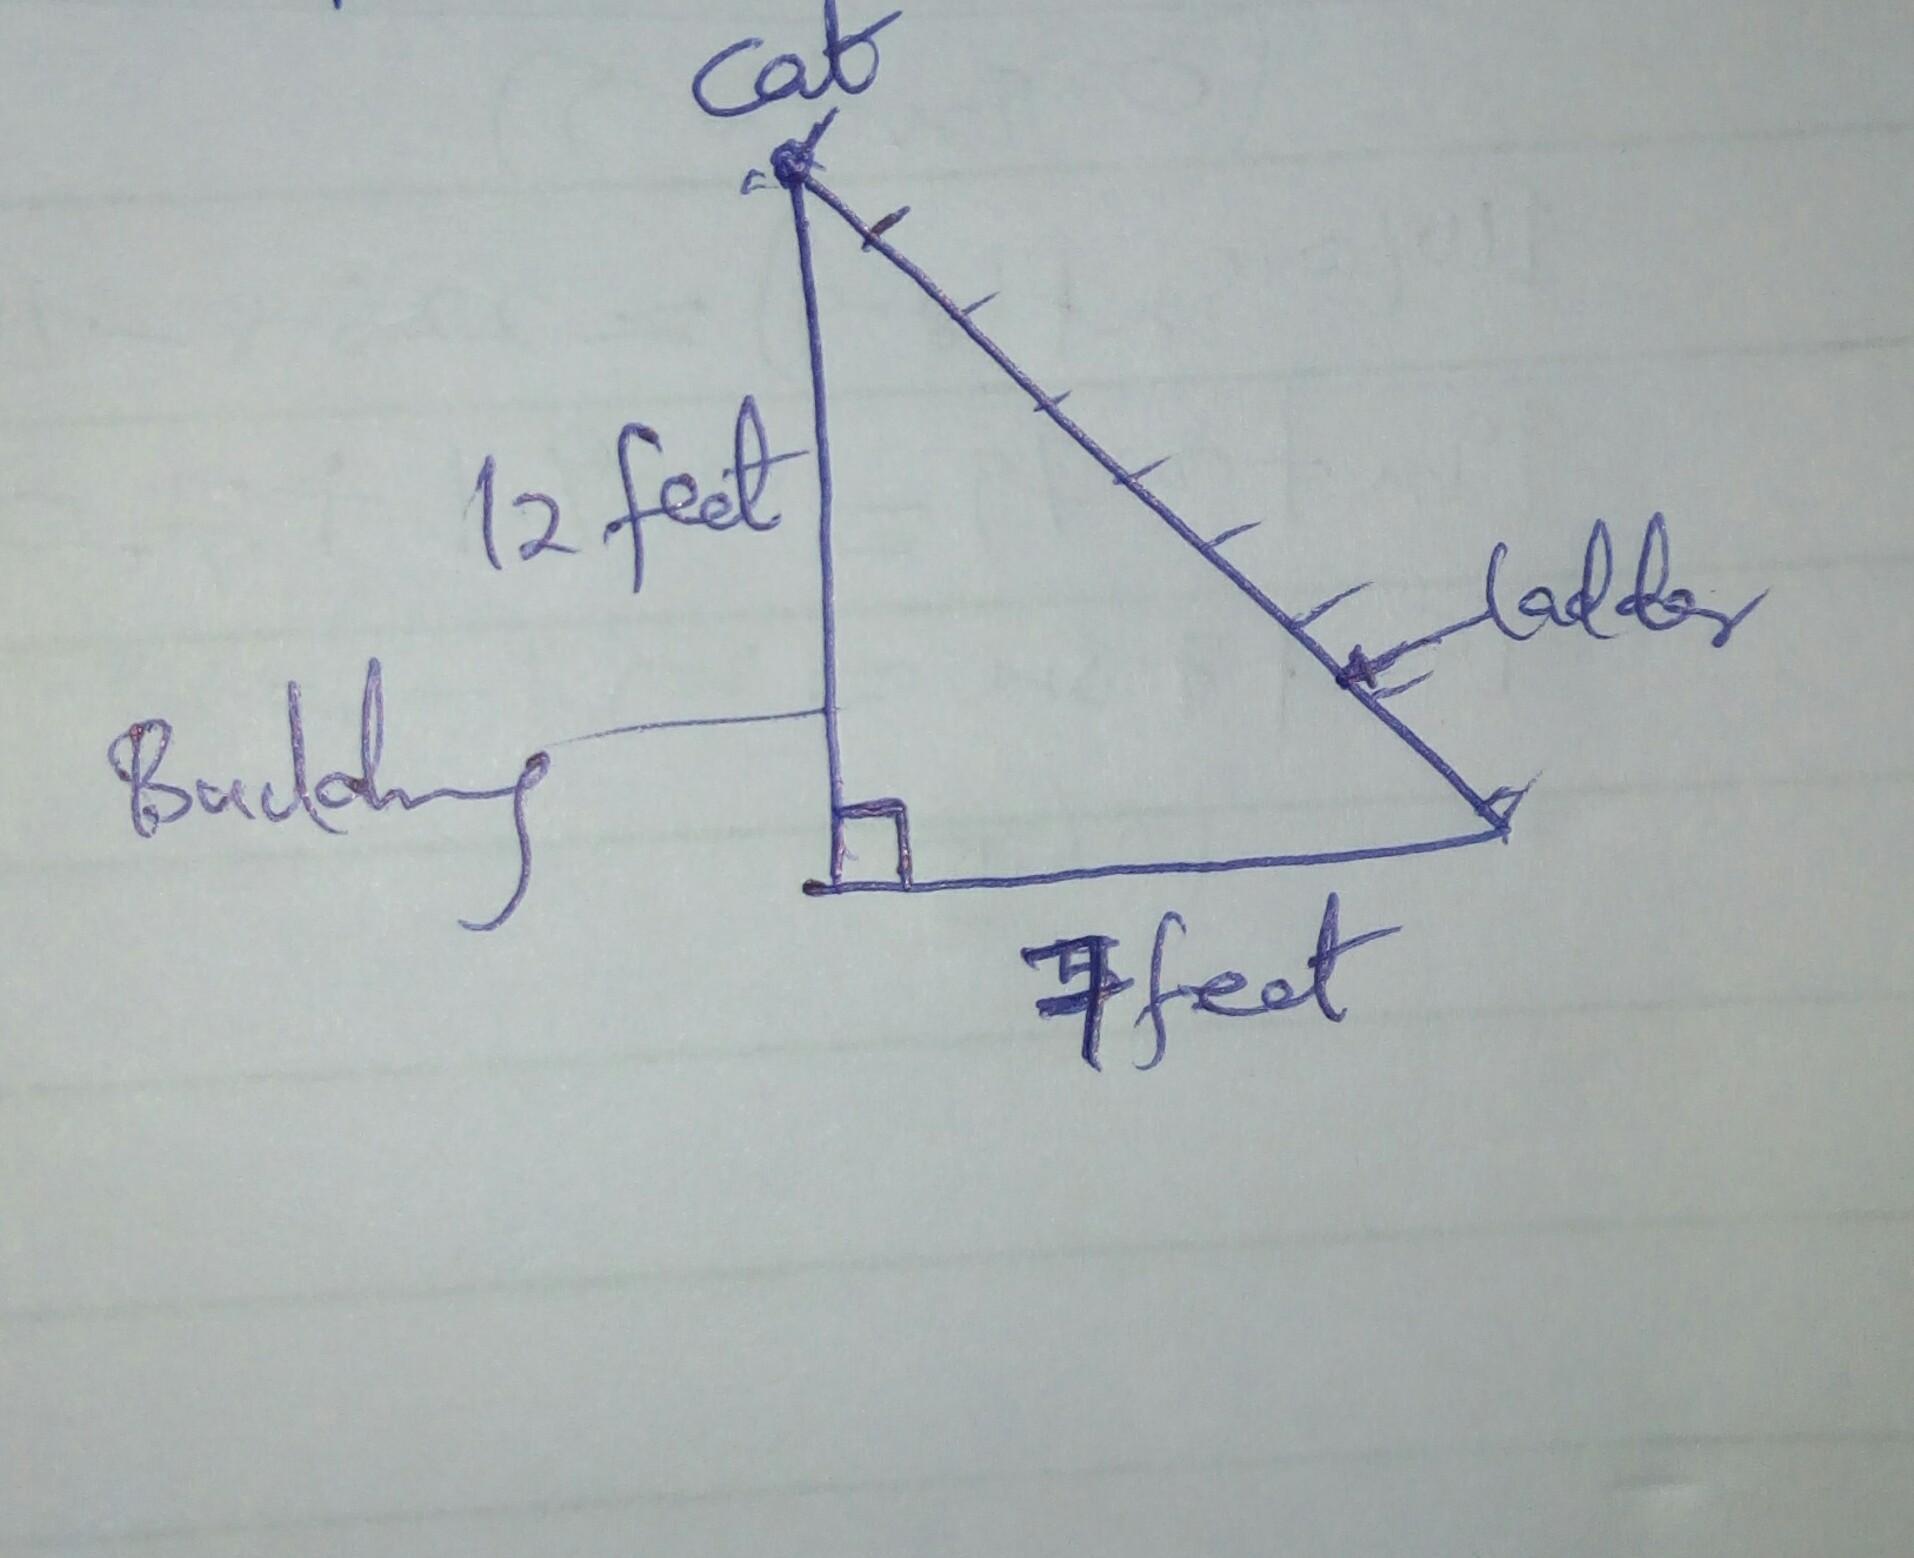 Cat
12 feet
ladder
Building
7 feet